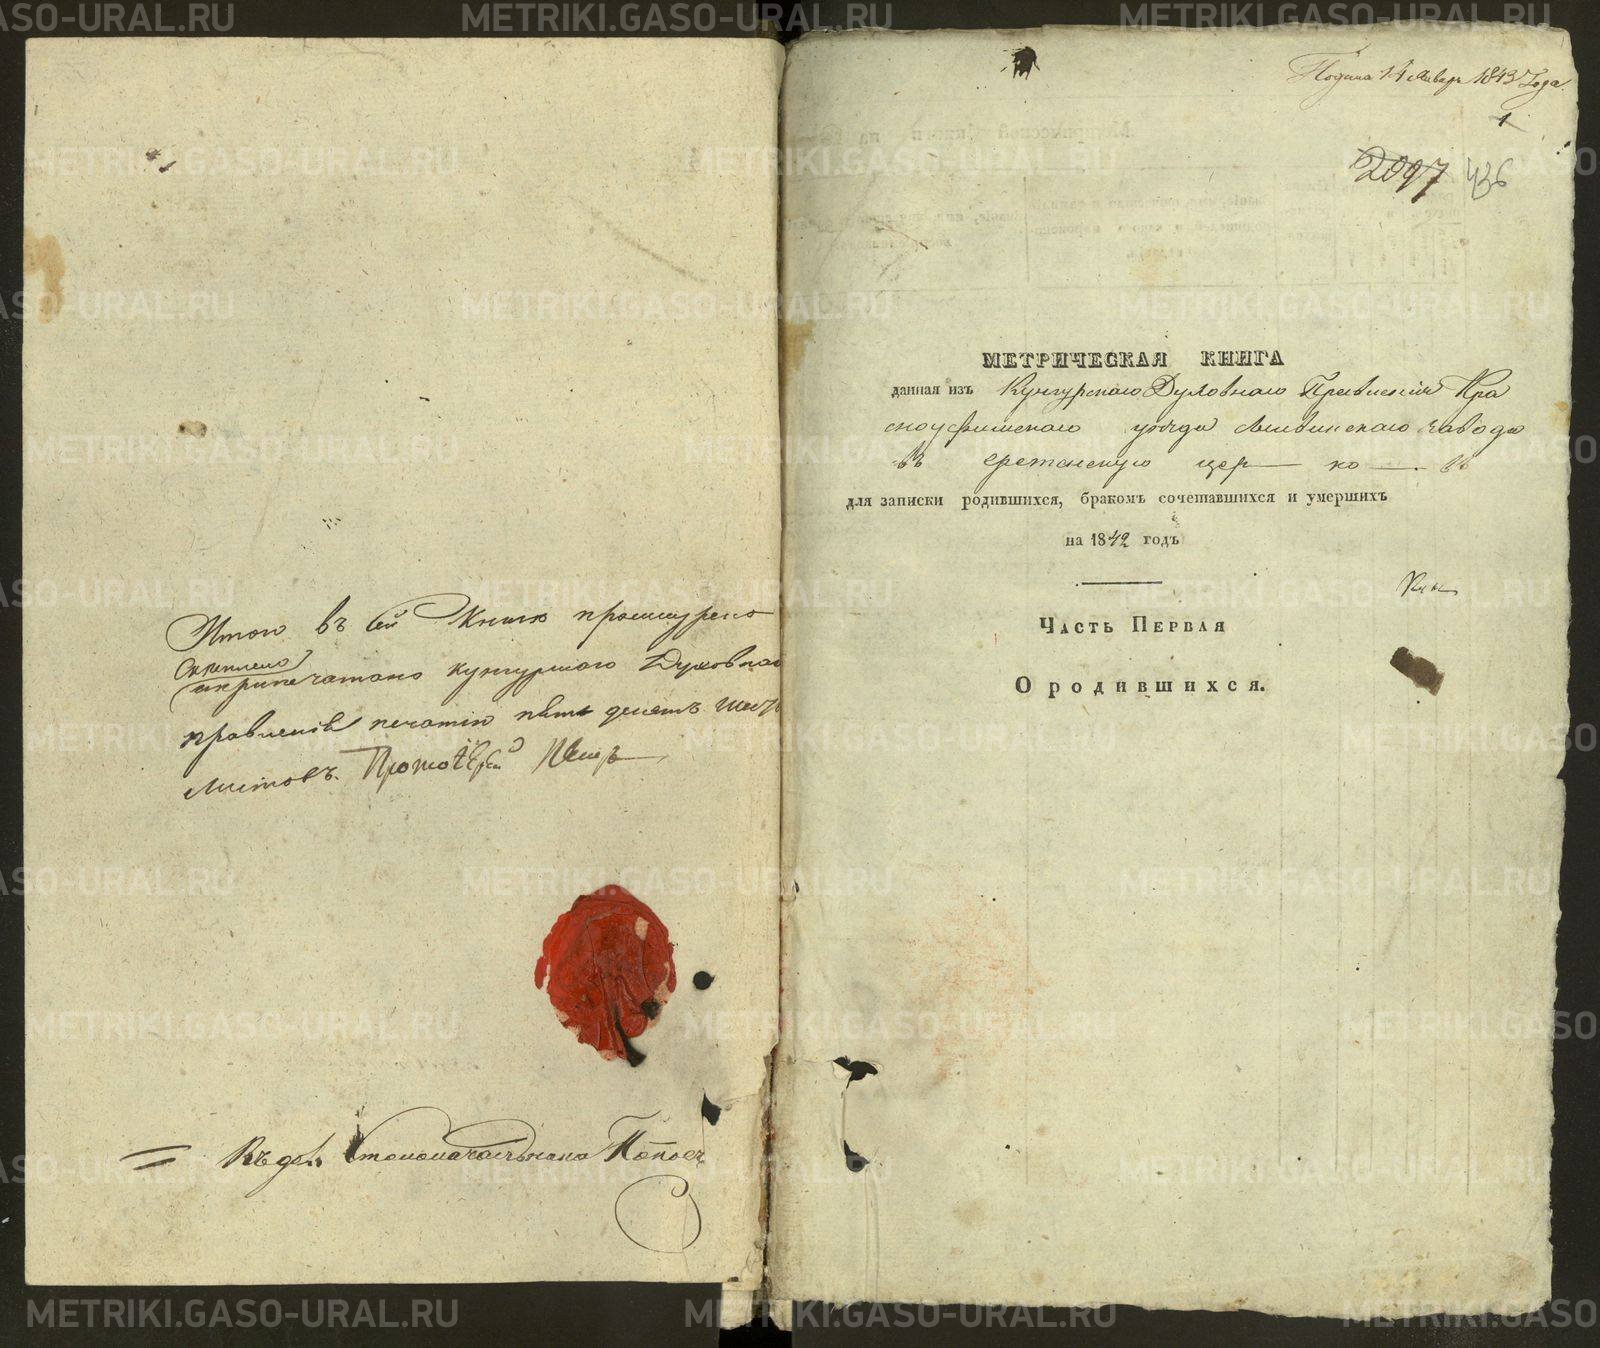 Итого въ сей Книгѣ прошнурено
скреплено
и припечатано кунгурского Духовнаго
правленія печатію пять десятъ шесть
листовъ. Протоіерей
Въ дол. Столоначальника Поповъ
Подана 14 Январ 1843 Года.
1
2097 436
МЕТРИЧЕСКАЯ КНИГА
данная изъ Кунгурскаго Духовнаго Правленія Кра
сноуфимскаго уезда заводо
въ сретенскую цер ко въ
для записки родившихся, бракомъ сочетавшихся и умершихъ
на 1842 годъ
Часть Первая
О родившихся.
METRIKI.GASO-URAL.RU